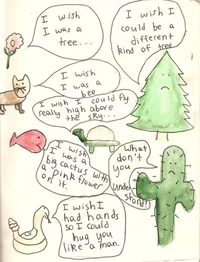 I wish
I was a
tree...
I wish I
could be a
different
kind of tree
I wish
I was a
bee
I wish I could fly
really high above
the sky...
I wish
I was a
big cactus with
a pink flower
on it.
What
don't
you
under
stand?
I wish I
had hands
so I could
hug you
like a man.